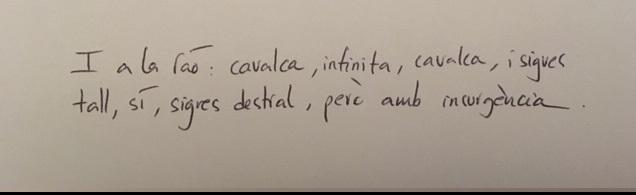 I a la raó: cavalca, infinita, cavalca, i sigues
tall, sí, sigues destral, però amb insurgència.